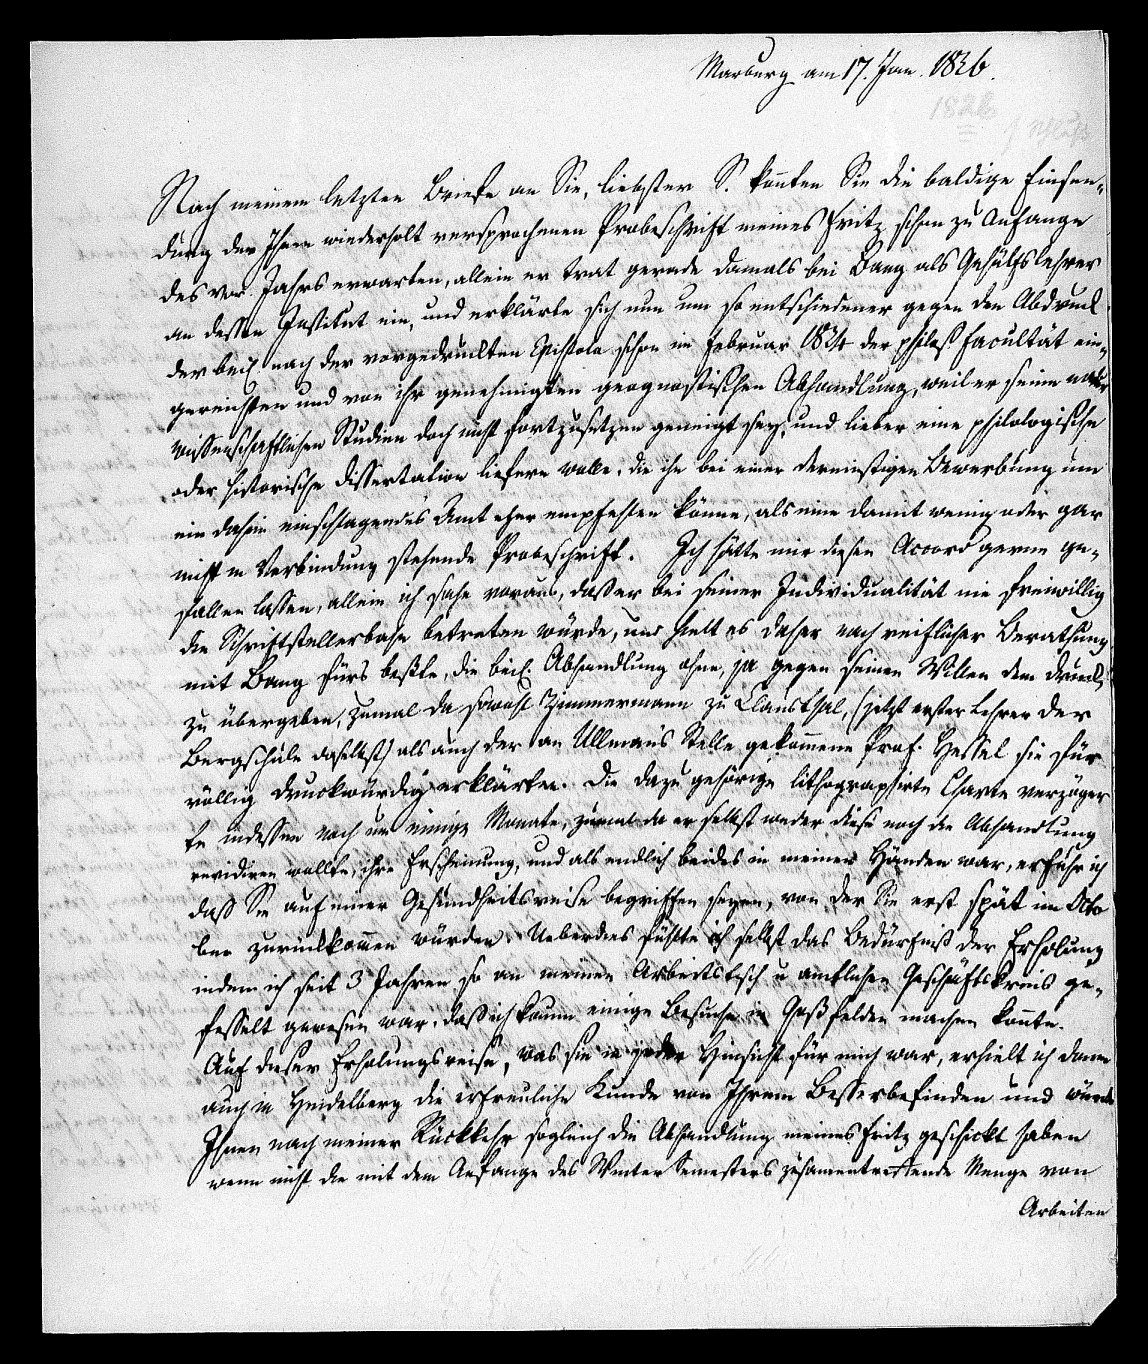 Marburg am 17. Jan. 1826.
1826
Nach meinem letzten Briefe an Sie, liebster S. konnten Sie die baldige Einsen-
dung der Ihnen wiederholt versprochenen Probeschrift meines Fritz schon zu Anfange
des vor. Jahrs erwarten, allein er trat gerade damals bei Bang als Gehülfslehrer
an dessen Institut ein, und erklärte sich nun um so entschiedener gegen den Abdruck
der nach der vorgedruckten Epistola schon im Februar der philos. Facultät ein-
gereichten und von ihr genehmigten geognostischen Abhandlung, weil er seine natur
wissenschaftlichen Studien doch nicht fortzusetzen geneigt sey, und lieber eine philologische
oder historische Dissertation liefern wolle, die ihn bei einer dereinstigen Bewerbung um
ein dahin einschlagendes Amt eher empfehlen könne, als eine damit wenig oder gar
nicht in Verbindung stehende Probeschrift. Ich hätte mir diesen Accord gerne ge-
fallen lassen, allein ich sahe voraus, daß er bei seiner Individualität nie freiwillig
die Schriftstellerbahn betreten würde, und hielt es daher nach reiflicher Berathung
mit Bang fürs beßte, die Abhandlung ohne, ja gegen seinen Willen dem Druck
zu übergeben, zumal da sowohl Zimmermann zu Clausthal, (jetzt erster Lehrer der
Bergschule daselbst) als auch der an Ullmanns Stelle gekommene Prof. Hessel sie für
völlig druckwürdig erklärten. Die dazu gehörige lithographirte Charte verzöger
te indessen noch um einige Monate, zumal da er selbst weder diese noch die Abhandlung
revidiren wollte, ihre Erscheinung, und als endlich beides in meinen Händen war, erfuhr ich
daß Sie auf einer Gesundheitsreise begriffen seyen, von der Sie erst spät im Octo
ber zurückkommen würden. Ueberdies fühlte ich selbst das Bedürfniß der Erholung
indem ich seit 3 Jahren so an meinen Arbeitstisch u amtlichen Geschäftskreis ge-
fesselt gewesen war, daß ich kaum einige Besuche in Goßfelden machen konnte.
Auf dieser Erholungsreise, was sie in jeder Hinsicht für mich war, erhielt ich dann
auch in Heidelberg die erfreuliche Kunde von Ihrem Besserbefinden und würde
Ihnen nach meiner Rückkehr sogleich die Abhandlung meines Fritz geschickt haben
wenn nicht die mit dem Anfange des Winter Semesters zusamentreffende Menge von
Arbeiten